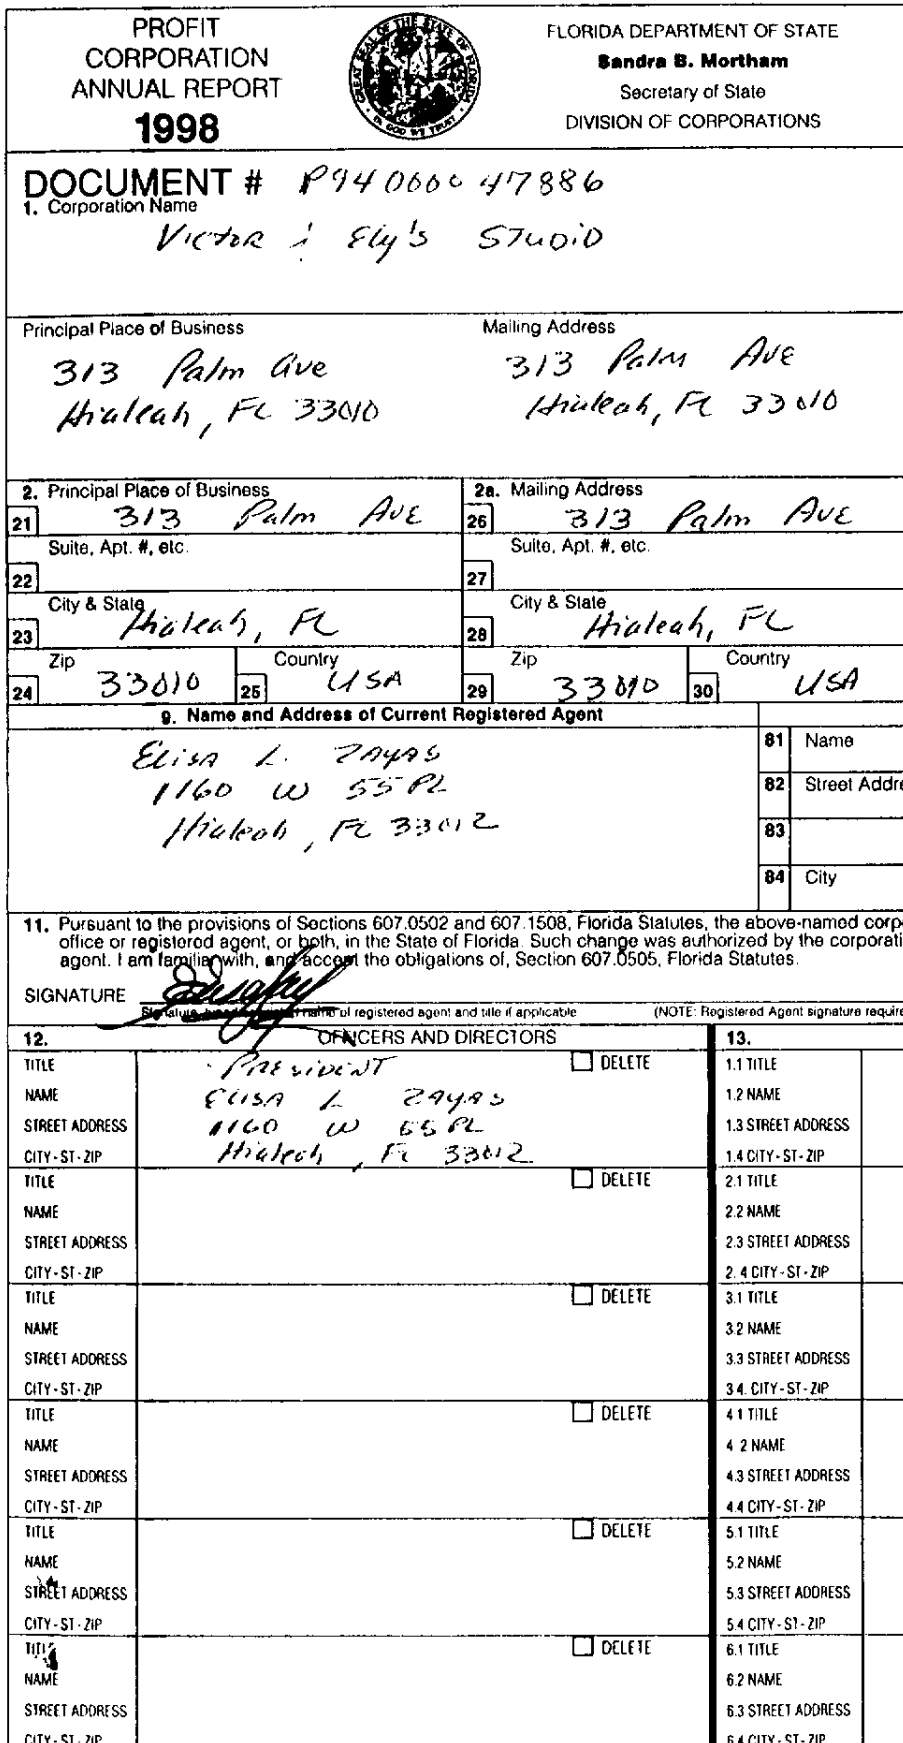 PROFIT
CORPORATION
ANNUAL REPORT
1998
GREAT SEAL OF THE STATE OF FLORIDA
IN GOD WE TRUST
FLORIDA DEPARTMENT OF STATE
Sandra B. Mortham
Secretary of State
DIVISION OF CORPORATIONS
DOCUMENT # P94000047886
1. Corporation Name
Victor & Ely's Studio
Principal Place of Business
313 Palm Ave
Hialeah, FL 33010
Mailing Address
313 Palm Ave
Hialeah, FL 33010
2. Principal Place of Business
21 313 Palm Ave
Suite, Apt. #, etc.
22
City & State
23 Hialeah, FL
Zip
24 33010
Country
25 USA
2a. Mailing Address
26 313 Palm Ave
Suite, Apt. #, etc.
27
City & State
28 Hialeah, FL
Zip
29 33010
Country
30 USA
9. Name and Address of Current Registered Agent
Elisa L. Zayas
1160 W 55 PL
Hialeah, FL 33012
81 Name
82 Street Addre
83
84 City
11. Pursuant to the provisions of Sections 607.0502 and 607.1508, Florida Statutes, the above-named corp
office or registered agent, or both, in the State of Florida. Such change was authorized by the corporati
agent. I am familiar with, and accept the obligations of, Section 607.0505, Florida Statutes.
SIGNATURE
Signature, name of registered agent and title if applicable (NOTE: Registered Agent signature require
12. OFFICERS AND DIRECTORS 13.
TITLE President DELETE 1.1 TITLE
NAME Elisa L Zayas 1.2 NAME
STREET ADDRESS 1160 W 55 PL 1.3 STREET ADDRESS
CITY-ST-ZIP Hialeah, FL 33012 1.4 CITY-ST-ZIP
TITLE DELETE 2.1 TITLE
NAME 2.2 NAME
STREET ADDRESS 2.3 STREET ADDRESS
CITY-ST-ZIP 2.4 CITY-ST-ZIP
TITLE DELETE 3.1 TITLE
NAME 3.2 NAME
STREET ADDRESS 3.3 STREET ADDRESS
CITY-ST-ZIP 34. CITY-ST-ZIP
TITLE DELETE 4 1 TITLE
NAME 4 2 NAME
STREET ADDRESS 4.3 STREET ADDRESS
CITY-ST-ZIP 4.4 CITY-ST-ZIP
TITLE DELETE 5.1 TITLE
NAME 5.2 NAME
STREET ADDRESS 5.3 STREET ADDRESS
CITY-ST-ZIP 5.4 CITY-ST-ZIP
TITLE DELETE 6.1 TITLE
NAME 6.2 NAME
STREET ADDRESS 6.3 STREET ADDRESS
CITY-ST-ZIP 6.4 CITY-ST-ZIP